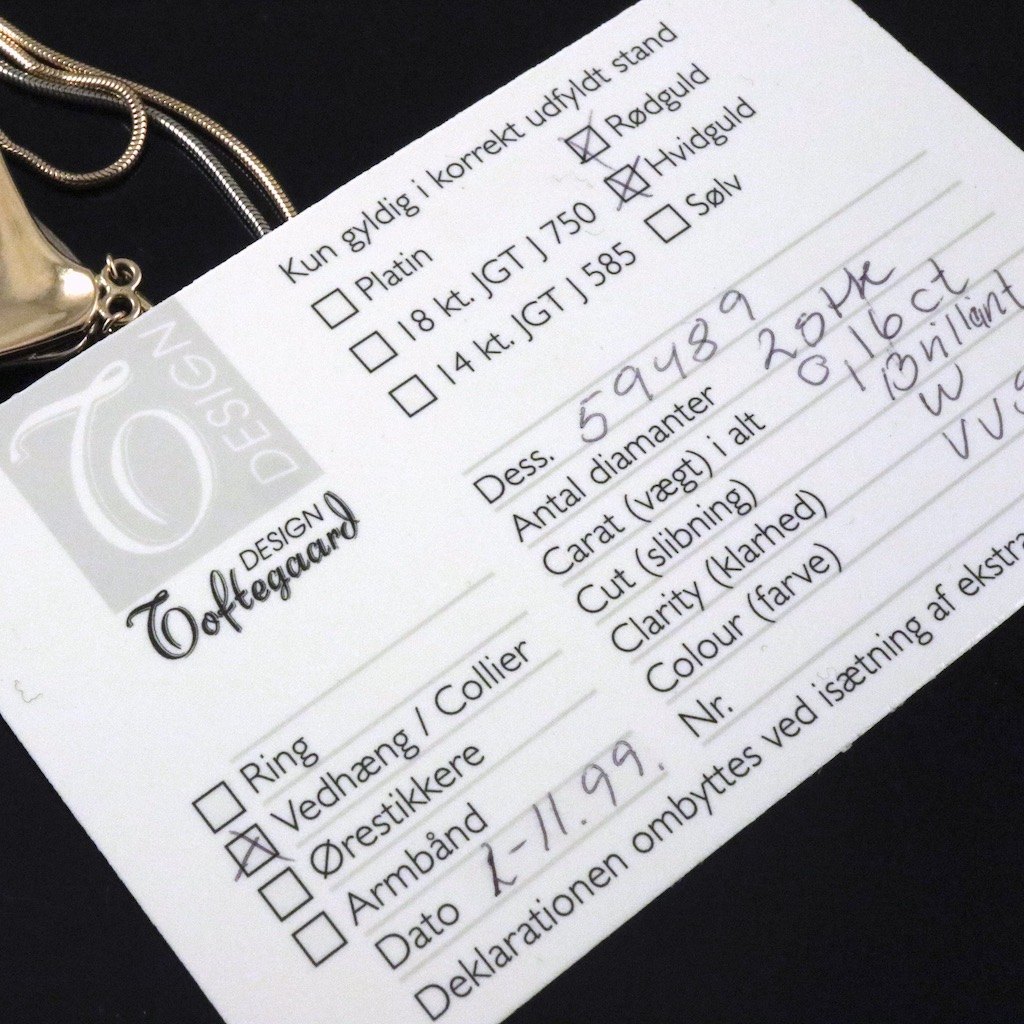 Kun gyldig i korrekt udfyldt stand
Platin
Rødguld
18 kt. JGT J 750
Hvidguld
14 kt. JGT J 585
Sølv
DESIGN
DESIGN
Toftegaard
Dess. 59489
Antal diamanter 20
Carat (vægt) i alt 0,16 ct
Cut (slibning) Brillant
Clarity (klarhed) W
Colour (farve)
Nr.
Ring
Vedhæng / Collier
Ørestikkere
Armbånd
Dato 2-11.99.
Deklarationen ombyttes ved isætning af ekstra